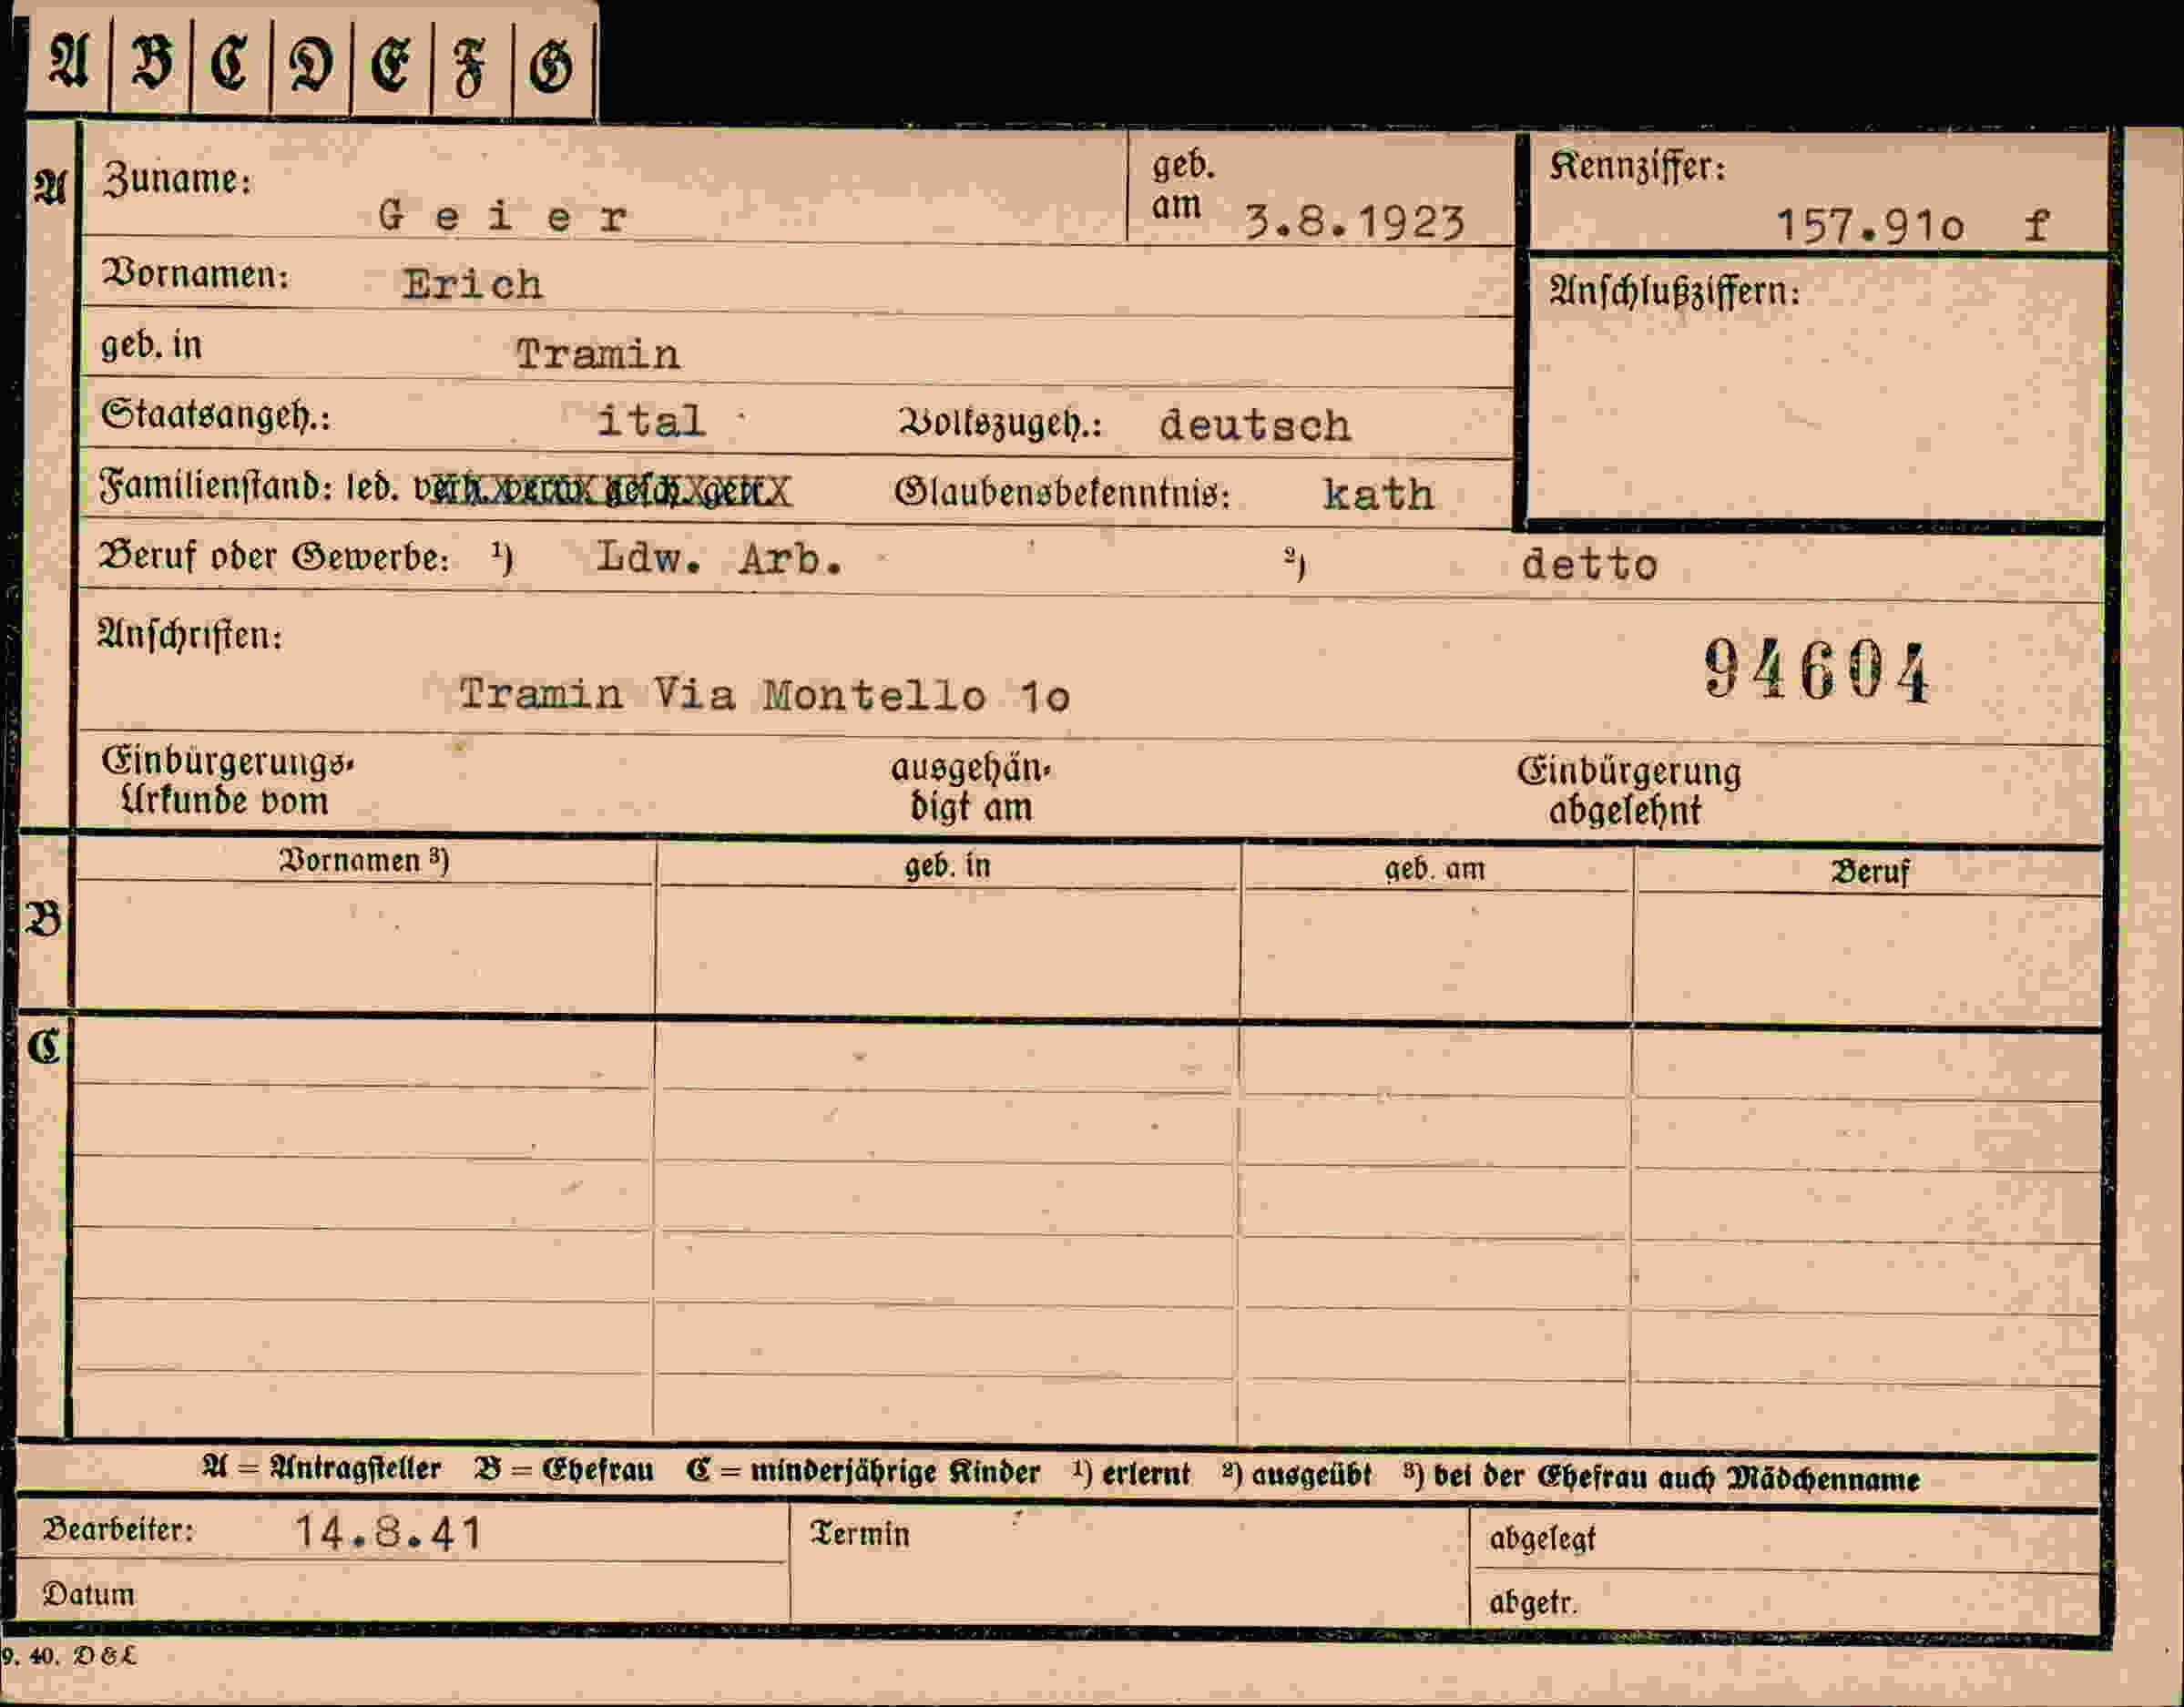 A B C D E F G
A Zuname: G e i e r geb. am 3.8.1923 Kennziffer: 157.91o f
Vornamen: Erich Anschlußziffern:
geb. in Tramin
Staatsangeh.: ital Volkszugeh.: deutsch
Familienstand: led. verh. verw. gesch. getr. Glaubensbekenntnis: kath
Beruf oder Gewerbe: 1) Ldw. Arb. 2) detto
Anschriften: 94604
Tramin Via Montello 1o
Einbürgerungs- ausgehän- Einbürgerung
Urkunde vom digt am abgelehnt
Vornamen 3) geb. in geb. am Beruf
B
C
A = Antragsteller B = Ehefrau C = minderjährige Kinder 1) erlernt 2) ausgeübt 3) bei der Ehefrau auch Mädchenname
Bearbeiter: 14.8.41 Termin abgelegt
Datum abgetr.
9. 40. D & L